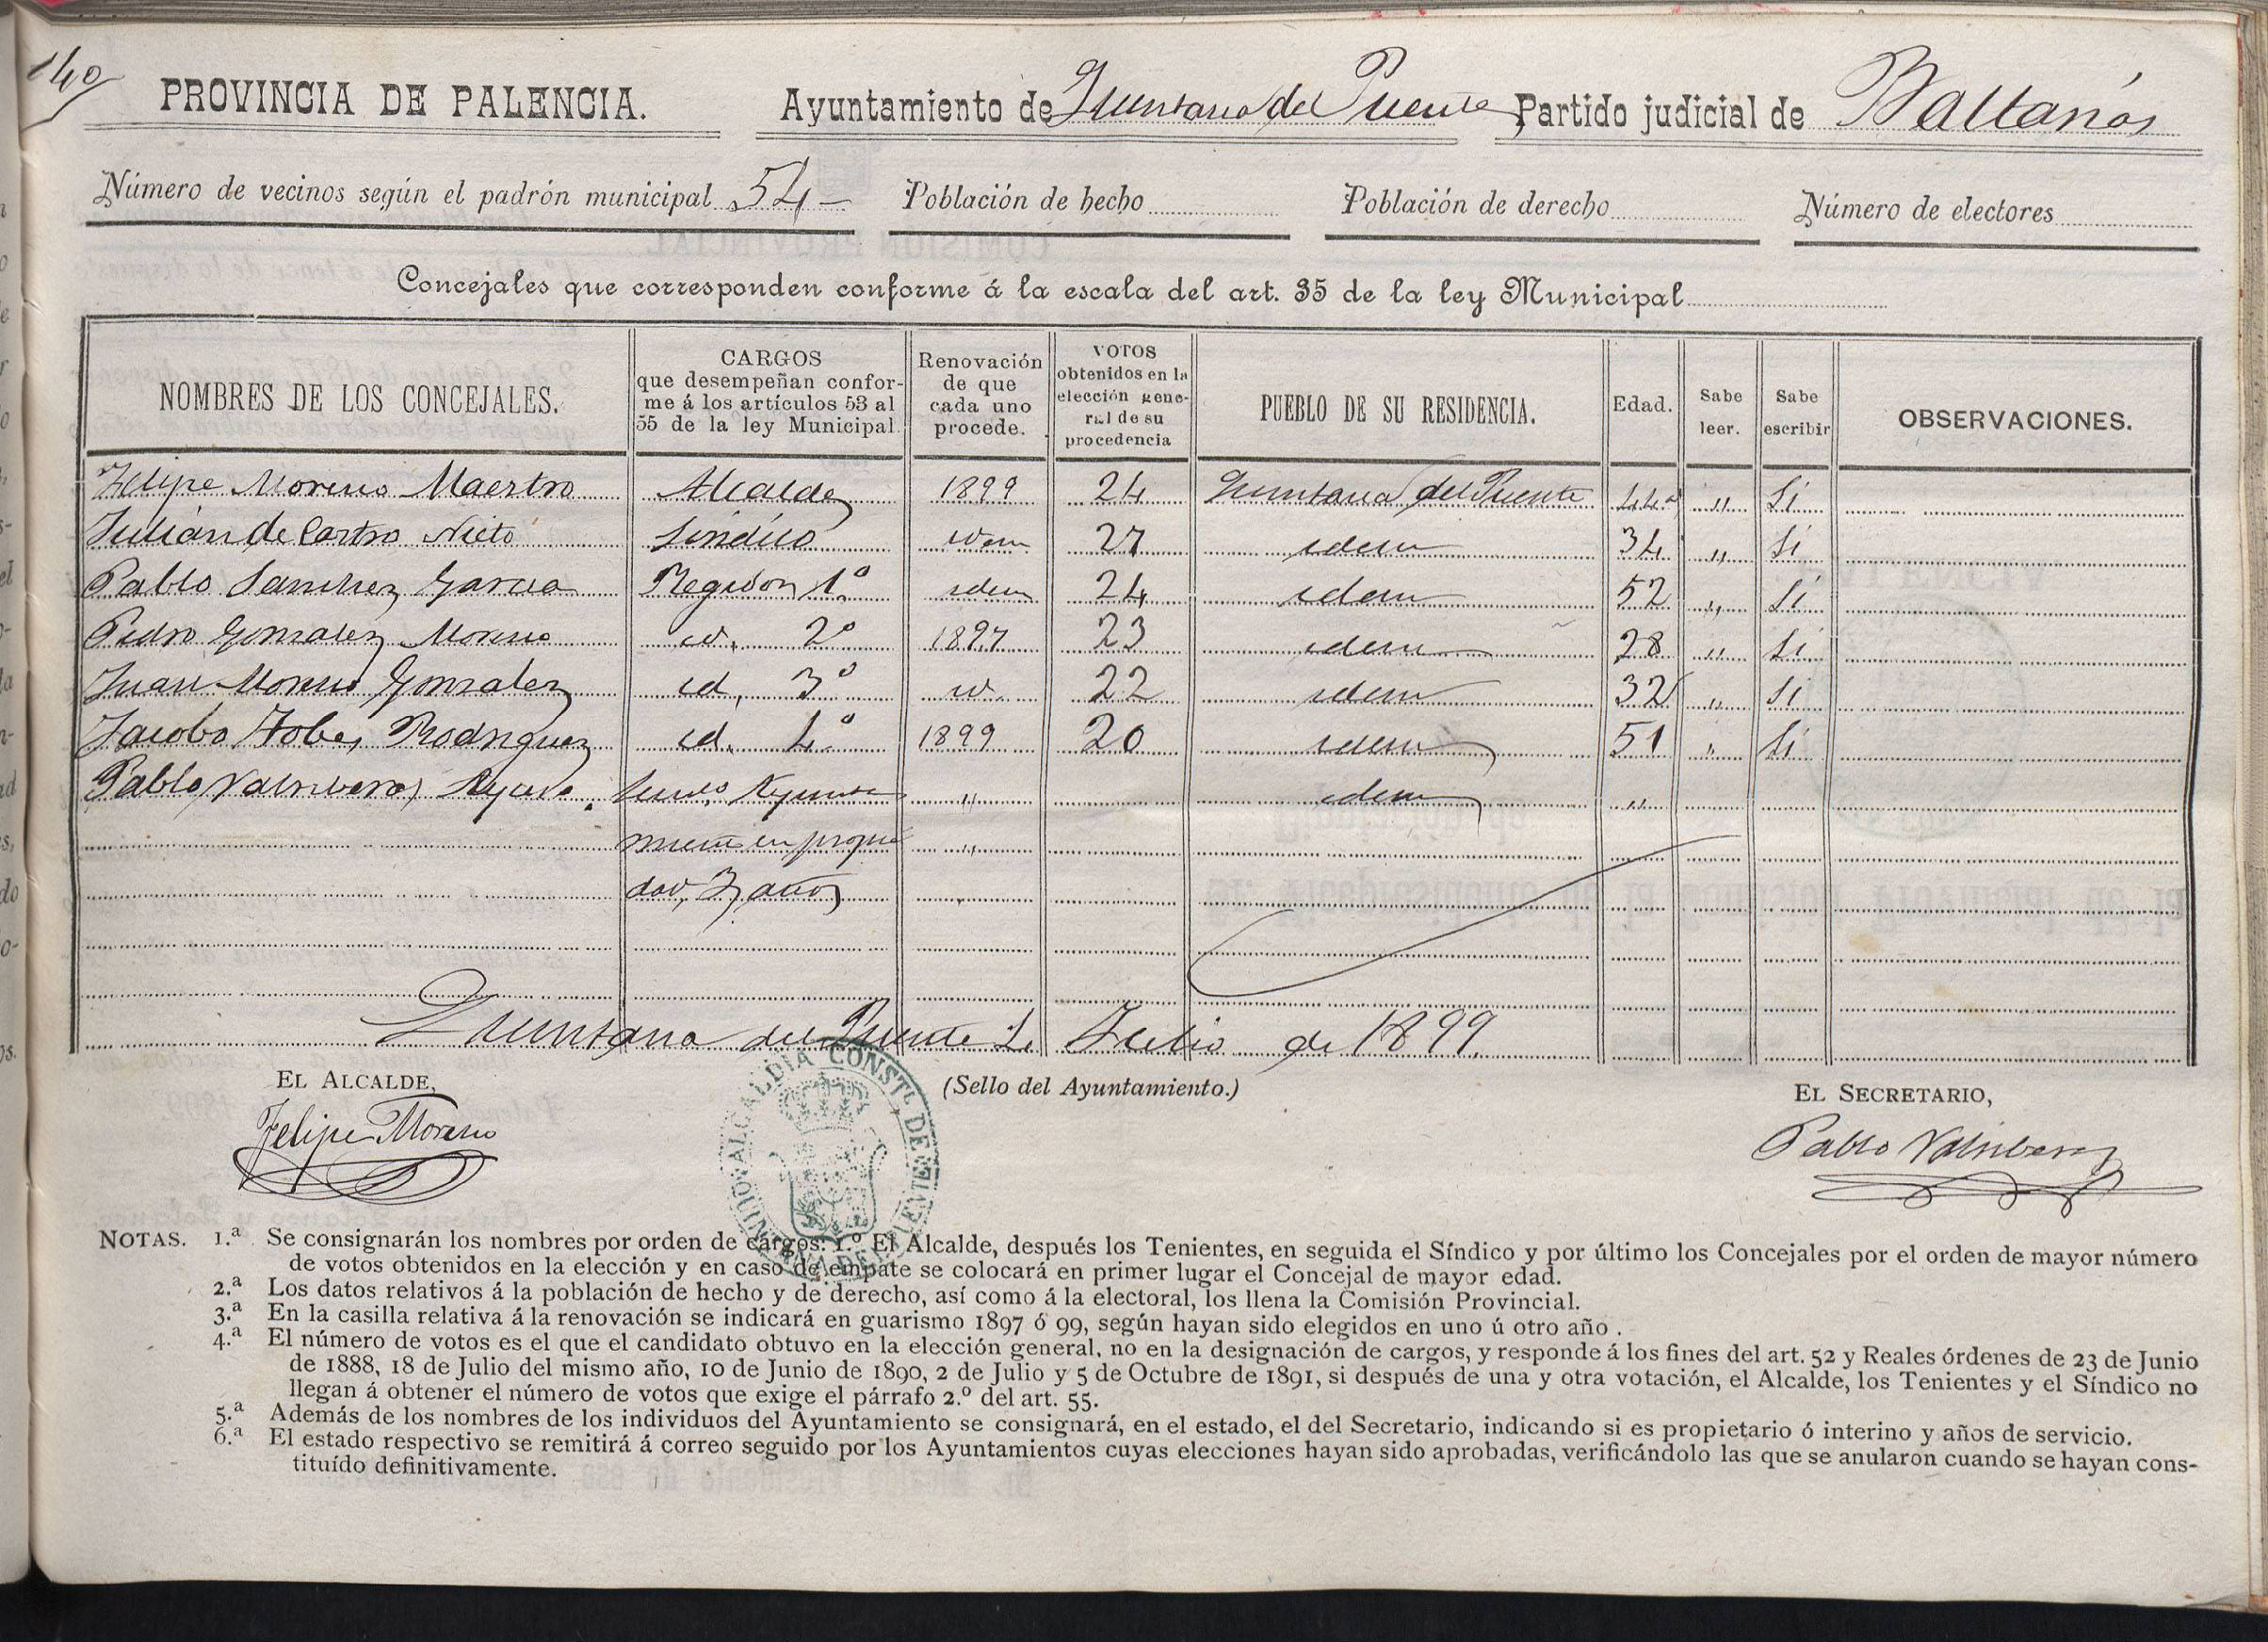 140
PROVINCIA DE PALENCIA. Ayuntamiento de Quintana del Puente Partido judicial de Baltanás
Número de vecinos según el padrón municipal 54 Población de hecho Población de derecho Número de electores
Concejales que corresponden conforme á la escala del art. 35 de la ley Municipal
NOMBRES DE LOS CONCEJALES. CARGOS que desempeñan confor-me á los artículos 53 al 55 de la ley Municipal. Renovación de que cada uno procede. VOTOS obtenidos en la elección gene-ral de su procedencia PUEBLO DE SU RESIDENCIA. Edad. Sabe leer. Sabe escribir OBSERVACIONES.
Felipe Moreno Maestro Alcalde 1899 24 Quintana del Puente 44 " Si
Julián de Castro Nieto Síndico idem 27 idem 34 " Si
Pablo Sanchez Garcia Regidor 1.º idem 24 idem 52 " Si
Pedro Gonzalez Moreno id. 2º 1897 23 idem 28 " Si
Juan Moreno Gonzalez id. 3º id. 22 idem 32 " Si
Jacobo Tobes Rodriguez id. 4º 1899 20 idem 51 " Si
Pablo Valriberas Secrº Ayunta " idem "
miento en propie "
dad, 3 años
Quintana del Puente 1. Julio de 1899.
EL ALCALDE, (Sello del Ayuntamiento.) EL SECRETARIO,
Felipe Moreno Pablo Valriberas
ALCALDIA CONSTL. DE QUINTANA DEL PUENTE
NOTAS. 1.ª Se consignarán los nombres por orden de cargos: 1.º El Alcalde, después los Tenientes, en seguida el Síndico y por último los Concejales por el orden de mayor número
de votos obtenidos en la elección y en caso de empate se colocará en primer lugar el Concejal de mayor edad.
2.ª Los datos relativos á la población de hecho y de derecho, así como á la electoral, los llena la Comisión Provincial.
3.ª En la casilla relativa á la renovación se indicará en guarismo 1897 ó 99, según hayan sido elegidos en uno ú otro año.
4.ª El número de votos es el que el candidato obtuvo en la elección general, no en la designación de cargos, y responde á los fines del art. 52 y Reales órdenes de 23 de Junio
de 1888, 18 de Julio del mismo año, 10 de Junio de 1890, 2 de Julio y 5 de Octubre de 1891, si después de una y otra votación, el Alcalde, los Tenientes y el Síndico no
llegan á obtener el número de votos que exige el párrafo 2.º del art. 55.
5.ª Además de los nombres de los individuos del Ayuntamiento se consignará, en el estado, el del Secretario, indicando si es propietario ó interino y años de servicio.
6.ª El estado respectivo se remitirá á correo seguido por los Ayuntamientos cuyas elecciones hayan sido aprobadas, verificándolo las que se anularon cuando se hayan cons-
tituído definitivamente.